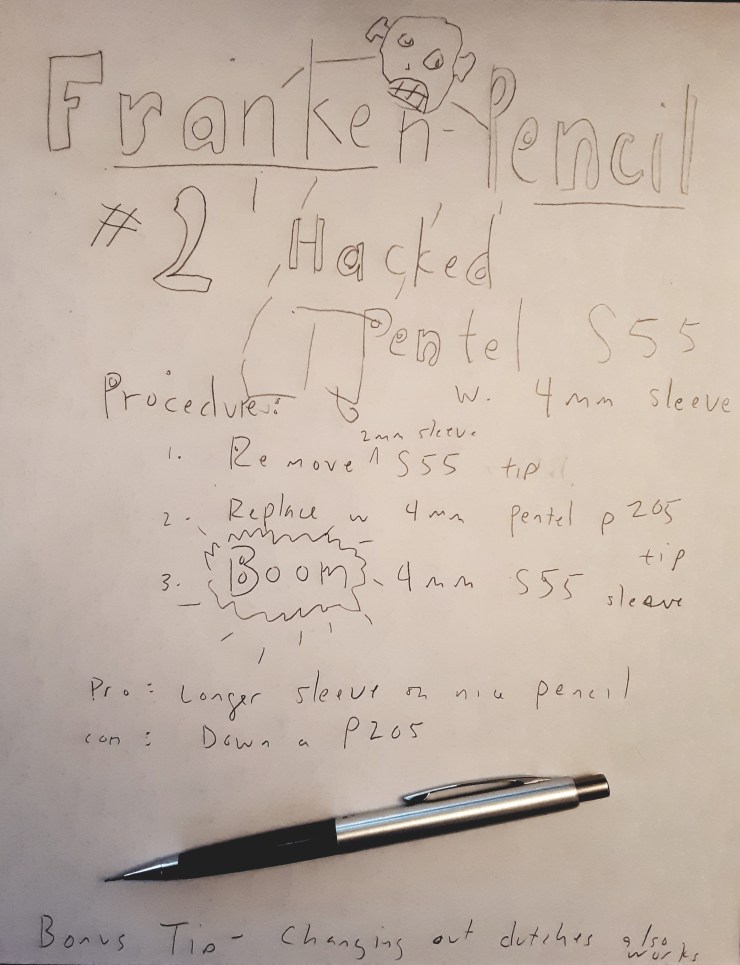 Franken-Pencil
#2 Hacked
Pentel S55
w. 4mm sleeve
Procedure:
1. Remove ^ 2mm sleeve S55 tip
2. Replace w 4mm pentel p205 tip
3. Boom 4mm S55 sleeve
Pro: Longer sleeve on nice pencil
con: Down a P205
Bonus Tip - Changing out clutches also works